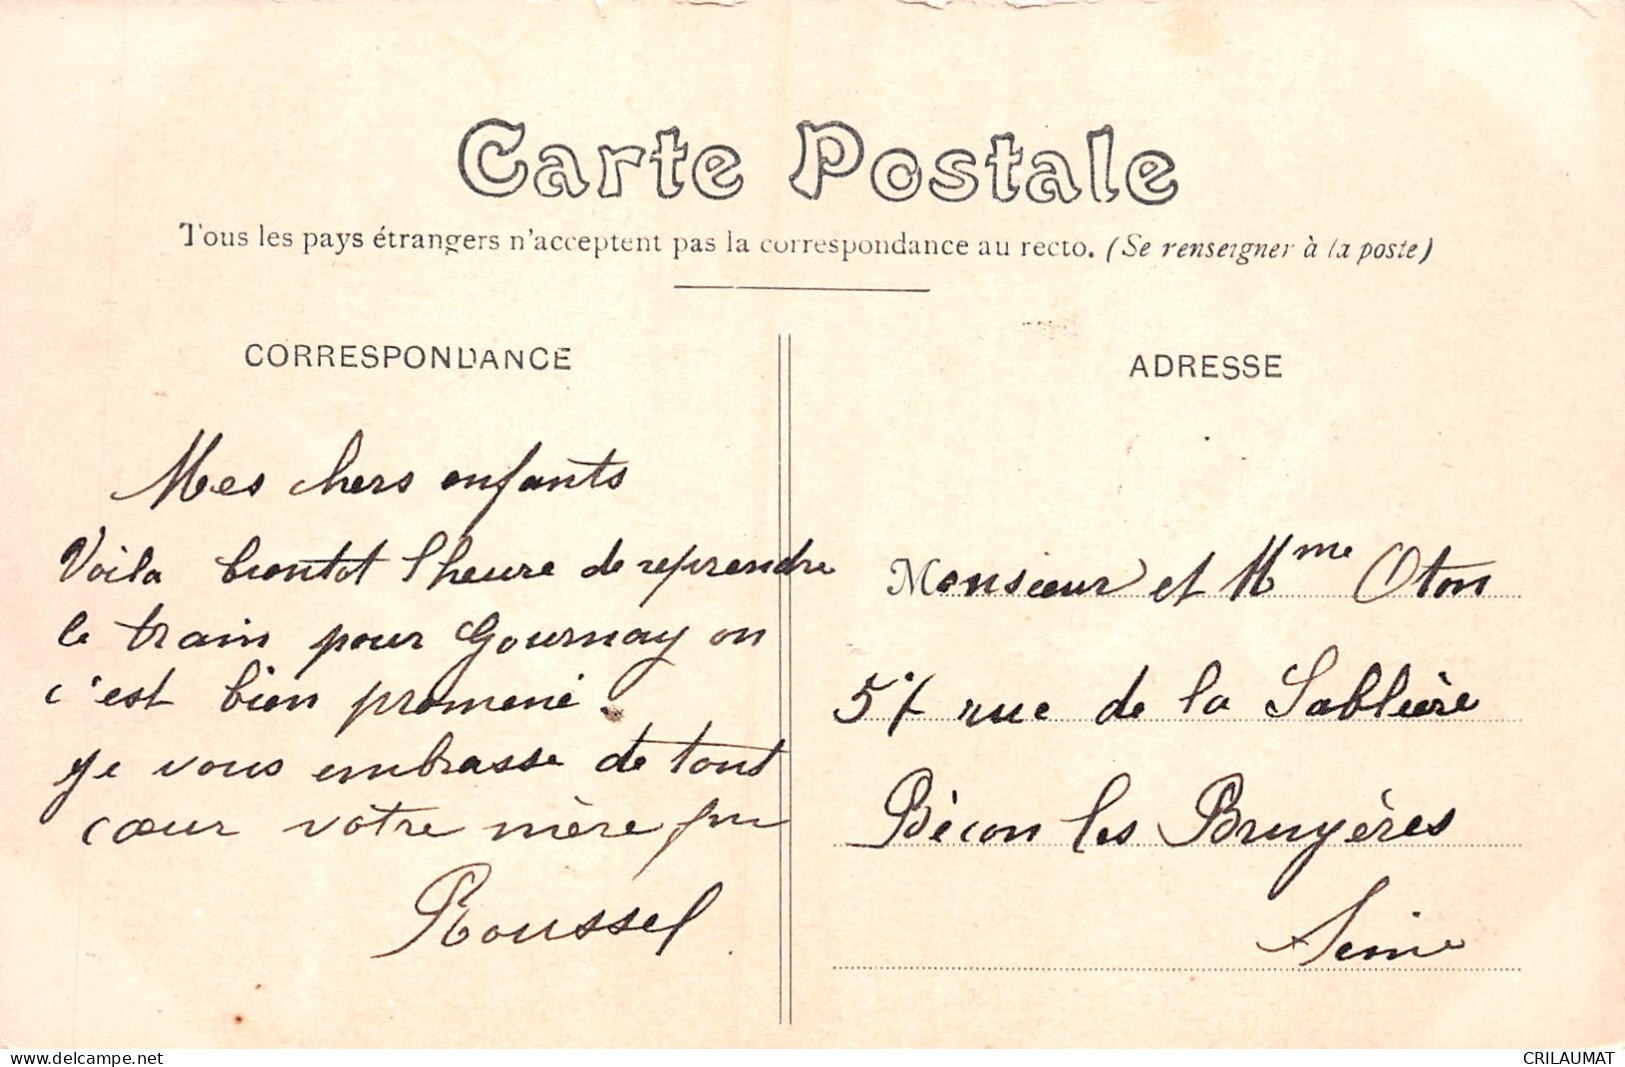 Carte Postale
Tous les pays étrangers n'acceptent pas la correspondance au recto. (Se renseigner à la poste)
CORRESPONDANCE
Mes chers enfants
Voila bientot l heure de reprendre
le train pour Gournay on
c'est bien promené.
je vous embrasse de tout
cœur votre mère
Roussel
ADRESSE
Monsieur et Mme Oton
57 rue de la Sablière
Bécon les Bruyères
Seine
www.delcampe.net
CRILAUMAT